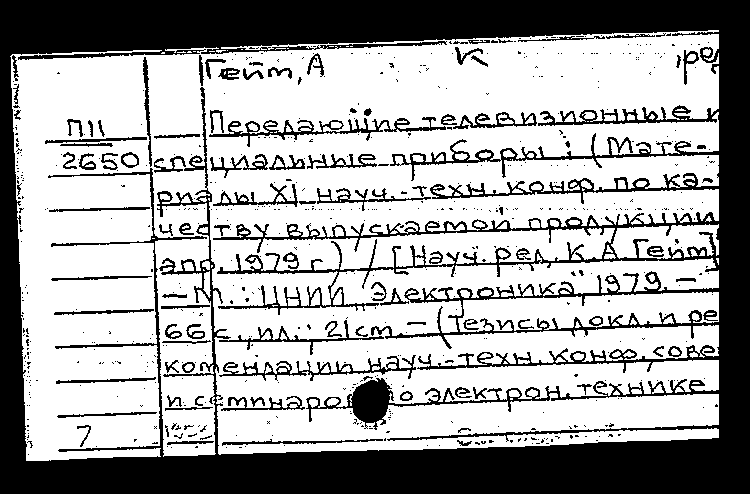 Гейт, А К , ред
П11 Передающие телевизионные и
2650 специальные приборы : (Мате-
риалы XI науч.-техн. конф. по ка-
честву выпускаемой продукции
апр. 1979 г) / [Науч. ред. К. А Гейт]
— М. : ЦНИИ „Электроника", 1979. —
66 с., ил. ; 21 cm. — (Тезисы докл. и ре
комендации науч.-техн. конф., сове
и семинаров по электрон. технике
7